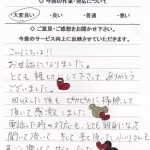 ◇ 今回の作業・対応について
・大変良い ・良い ・普通 ・悪い
◇ ご意見・ご感想をお聞かせ下さい。
今後のサービス向上に反映させていきます。
こんにちは!!
お世話になりました。
とても親切にして下さって ありがとう
ございました。
回収した後も ピカピカに掃除して
頂いて感激しました
電話での対応も、とても親身になって
聞いて頂いて、